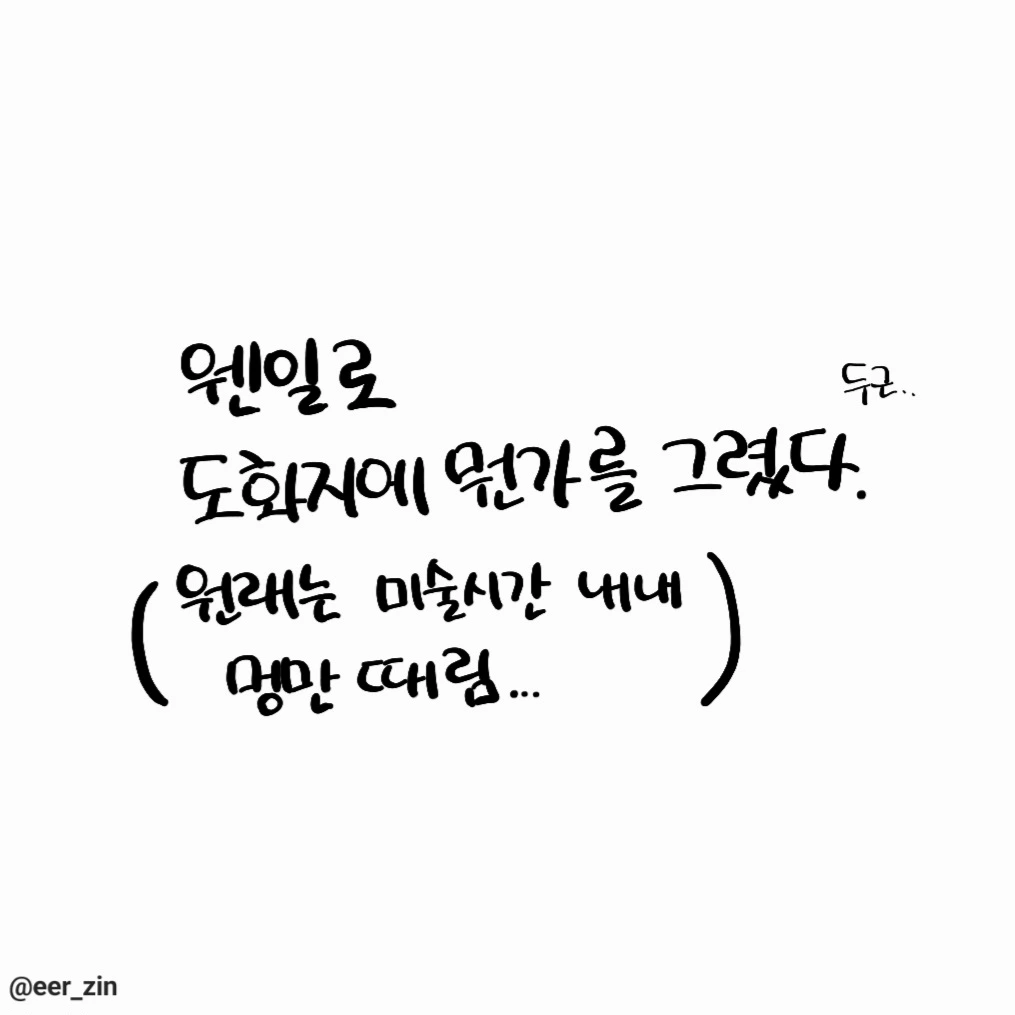 웬일로
두근..
도화지에 뭔가를 그렸다.
(원래는 미술시간 내내
멍만 때림...)
@eer_zin